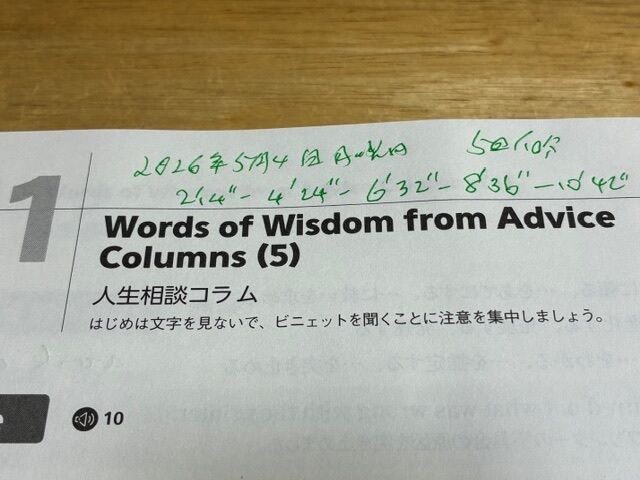 2026年5月4日 月曜日 5回/10分
2'14"- 4'24"- 6'32"- 8'36"-10'42"
1
Words of Wisdom from Advice
Columns (5)
人生相談コラム
はじめは文字を見ないで、ビニェットを聞くことに注意を集中しましょう。
10